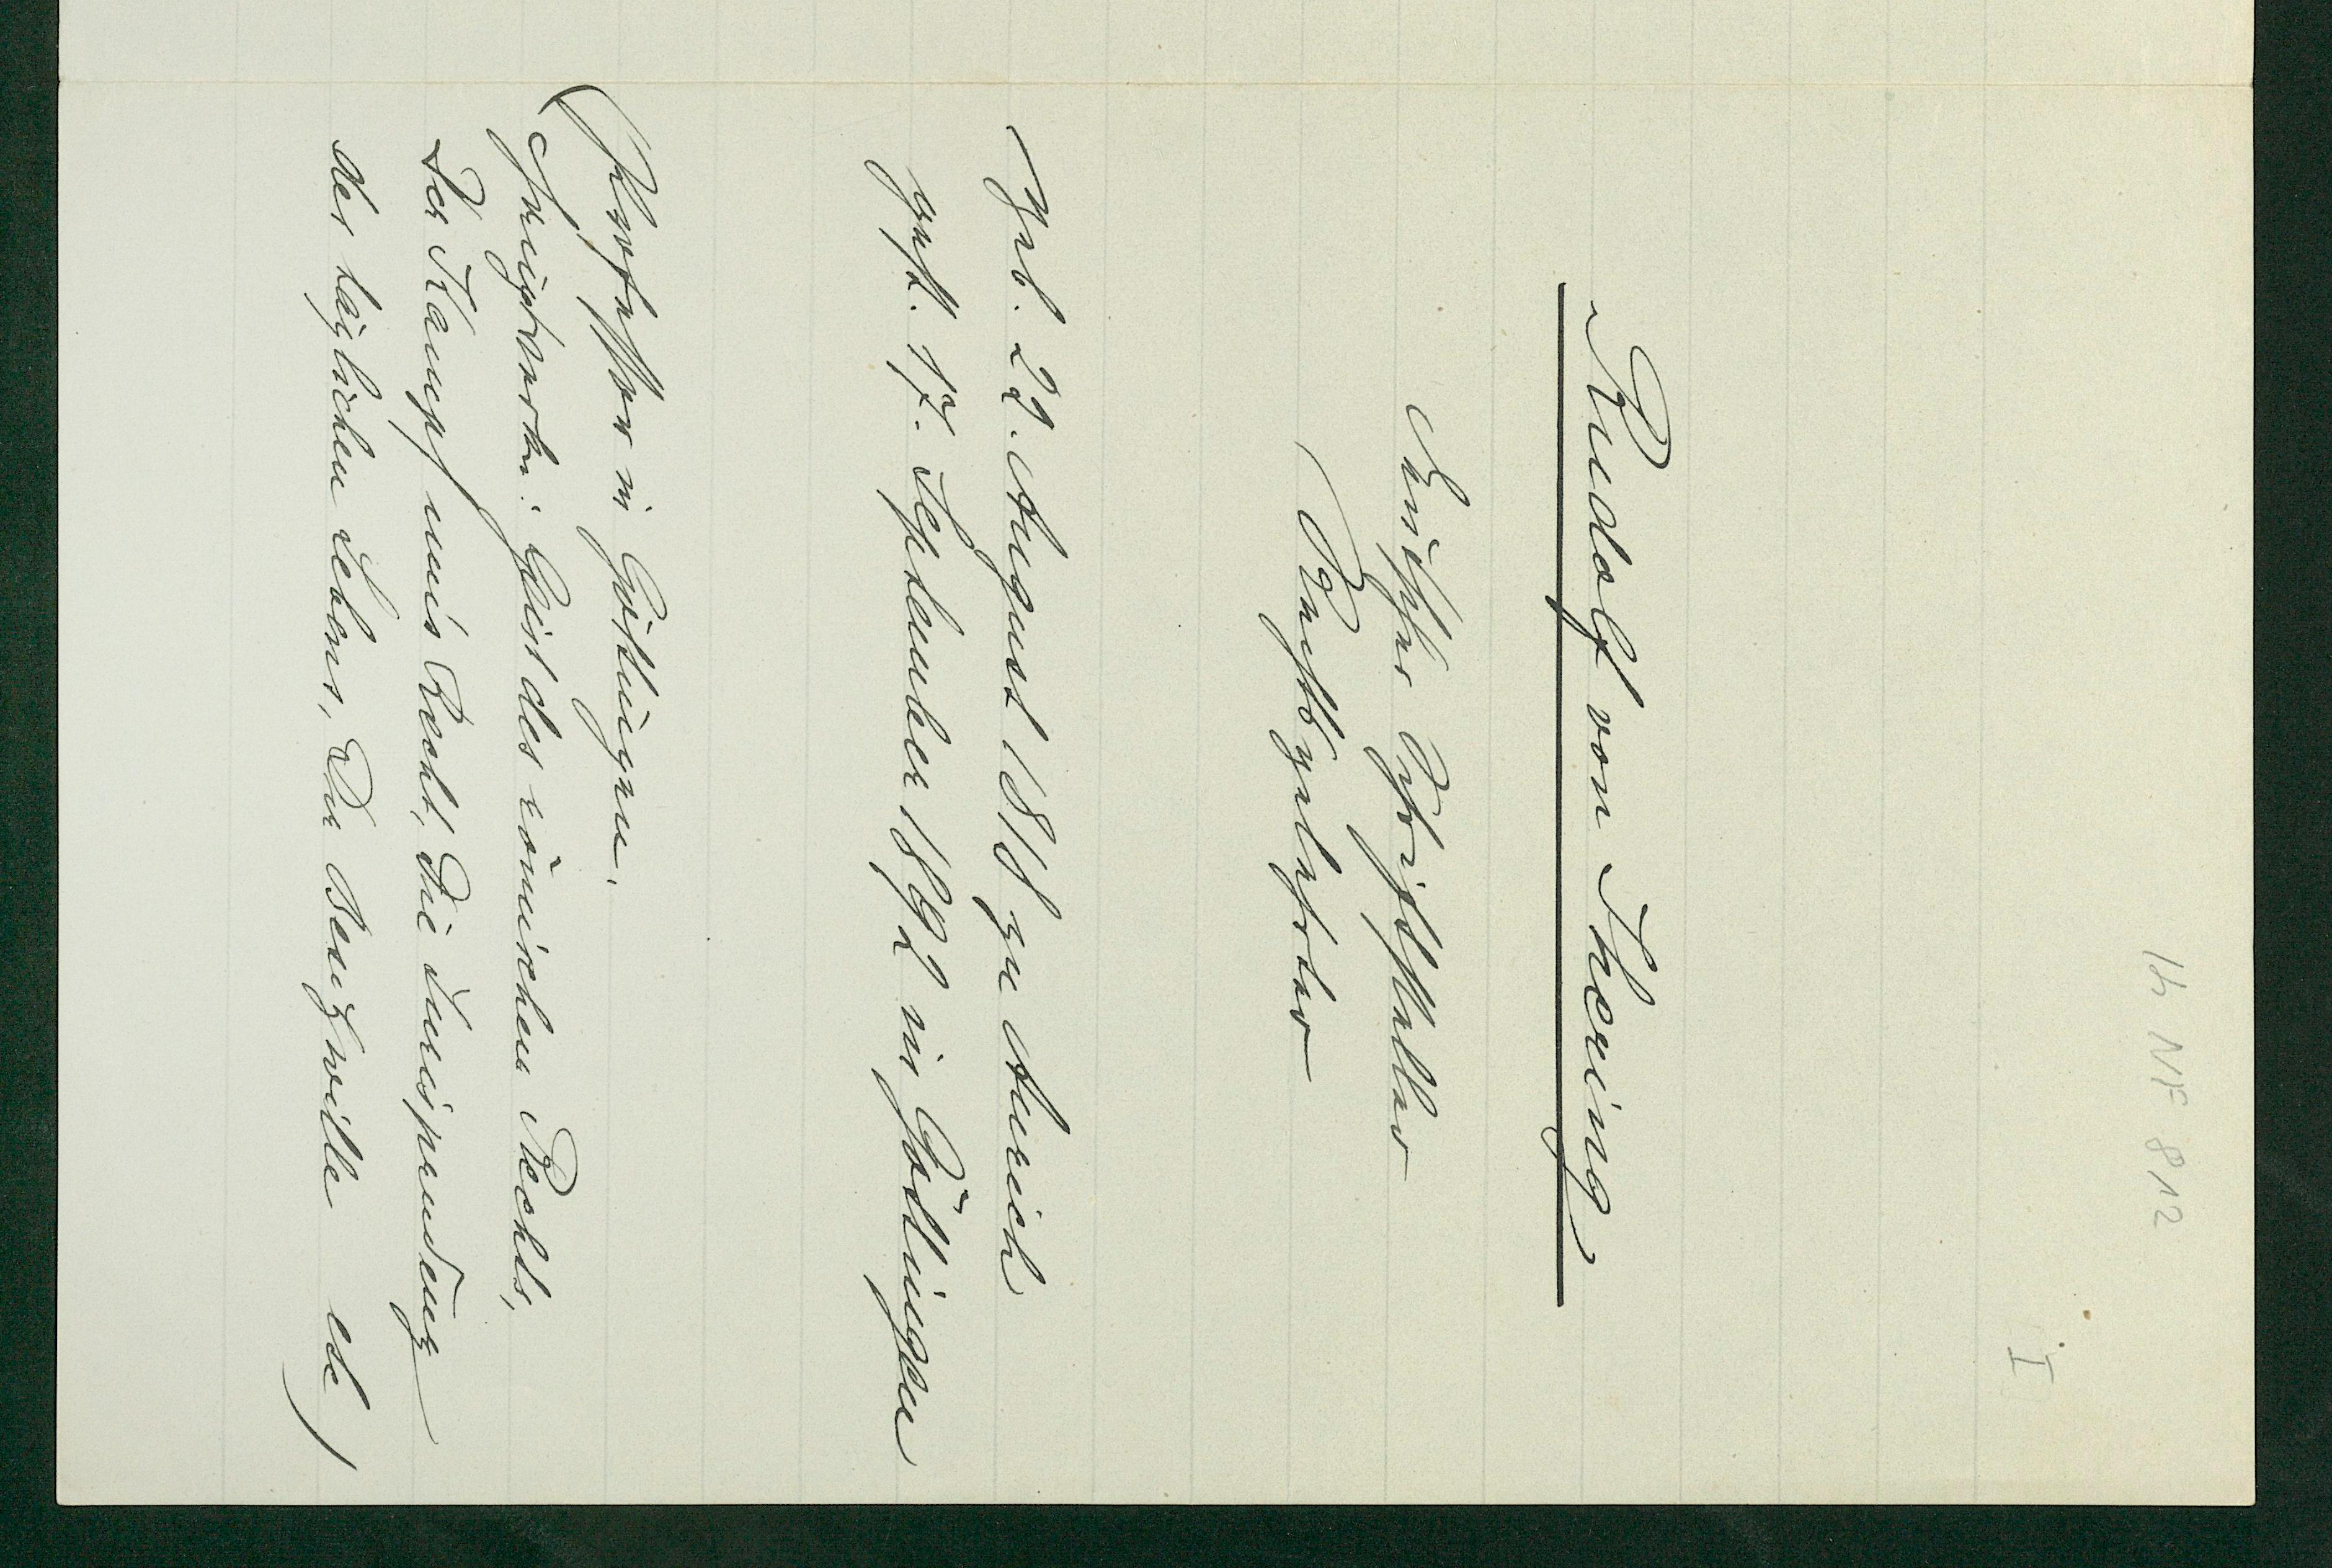 14 NF 812
I
Rudolf von Ihering
Deutscher Schriftsteller
Rechtsgelehrter
Geb. 22. August 1818 zu Aurich
gest. 17. September 1892 in Göttingen
(Professor in Göttingen.
Hauptwerke: Geist des römischen Rechts,
Der Kampf um's Recht, Die Jurisprudenz
des täglichen Lebens, Der Besitzwille etc)